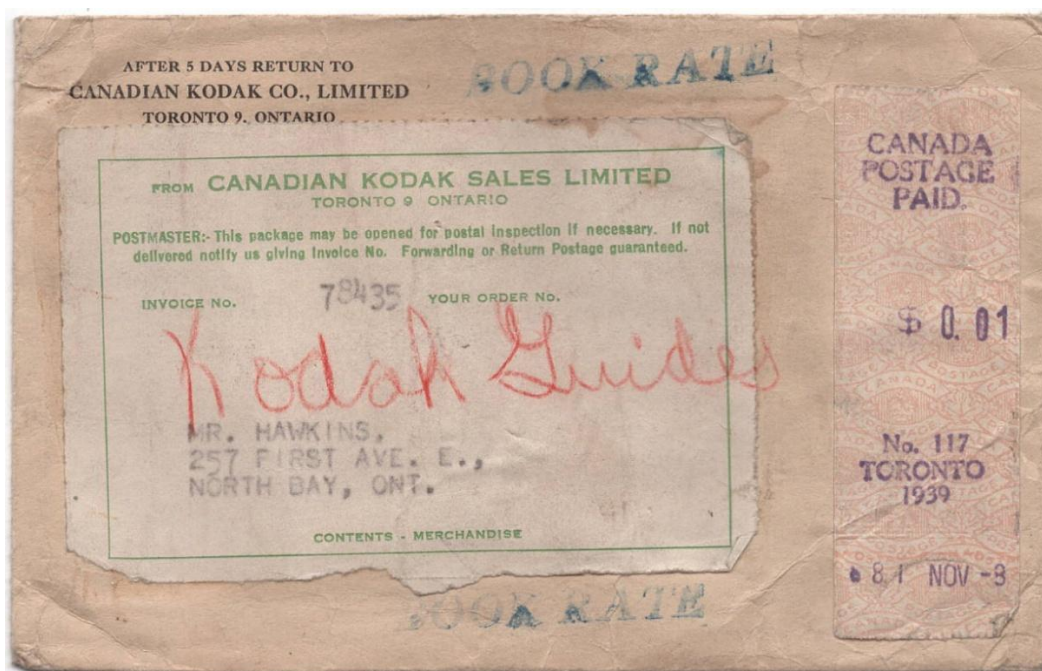 AFTER 5 DAYS RETURN TO
CANADIAN KODAK CO., LIMITED
TORONTO 9, ONTARIO
BOOK RATE
FROM CANADIAN KODAK SALES LIMITED
TORONTO 9 ONTARIO
POSTMASTER:- This package may be opened for postal inspection if necessary. If not
delivered notify us giving Invoice No. Forwarding or Return Postage guaranteed.
INVOICE No. 78435 YOUR ORDER No.
Kodak Guides
MR. HAWKINS,
257 FIRST AVE. E.,
NORTH BAY, ONT.
CONTENTS - MERCHANDISE
BOOK RATE
CANADA
POSTAGE
PAID.
$ 0.01
No. 117
TORONTO
1939
NOV -8